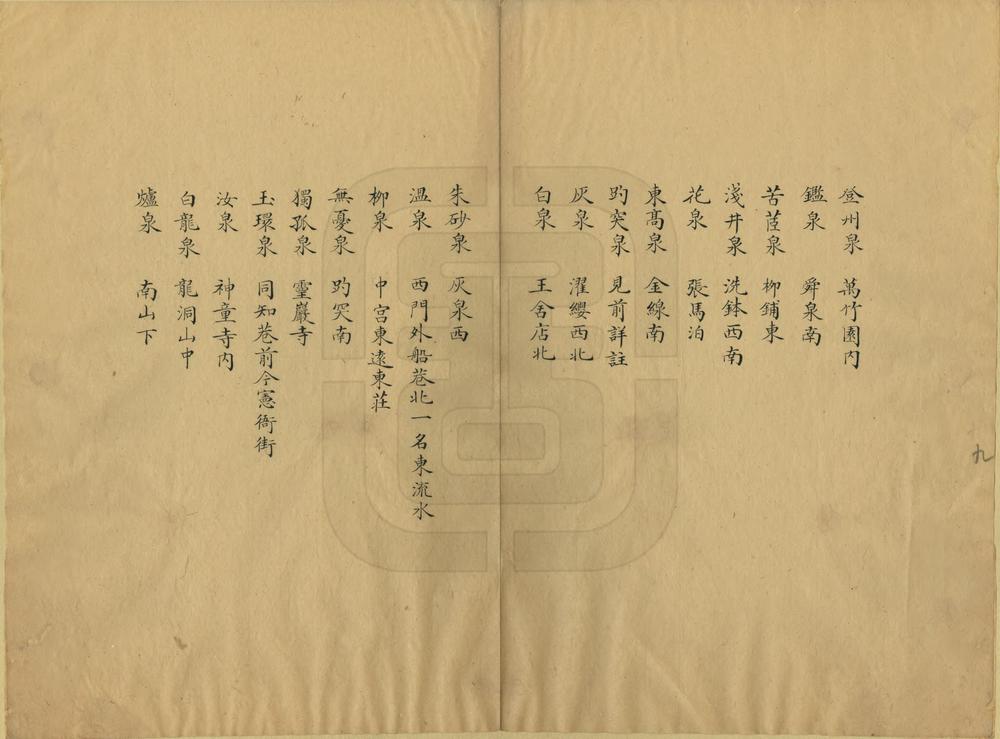 登州泉　萬竹園内
鑑泉　舜泉南
苦苣泉　柳鋪東
淺井泉　洗鉢西南
花泉　張馬泊
東髙泉　金線南
趵突泉　見前詳註
灰泉　濯纓西北
白泉　王舍店北
朱砂泉　灰泉西
温泉　西門外船巷北一名東流水
柳泉　中宫東逺東莊
無憂泉　趵突南
獨孤泉　靈巖寺
玉環泉　同知巷前今憲衙街
汝泉　神童寺内
白龍泉　龍洞山中
爐泉　南山下
九